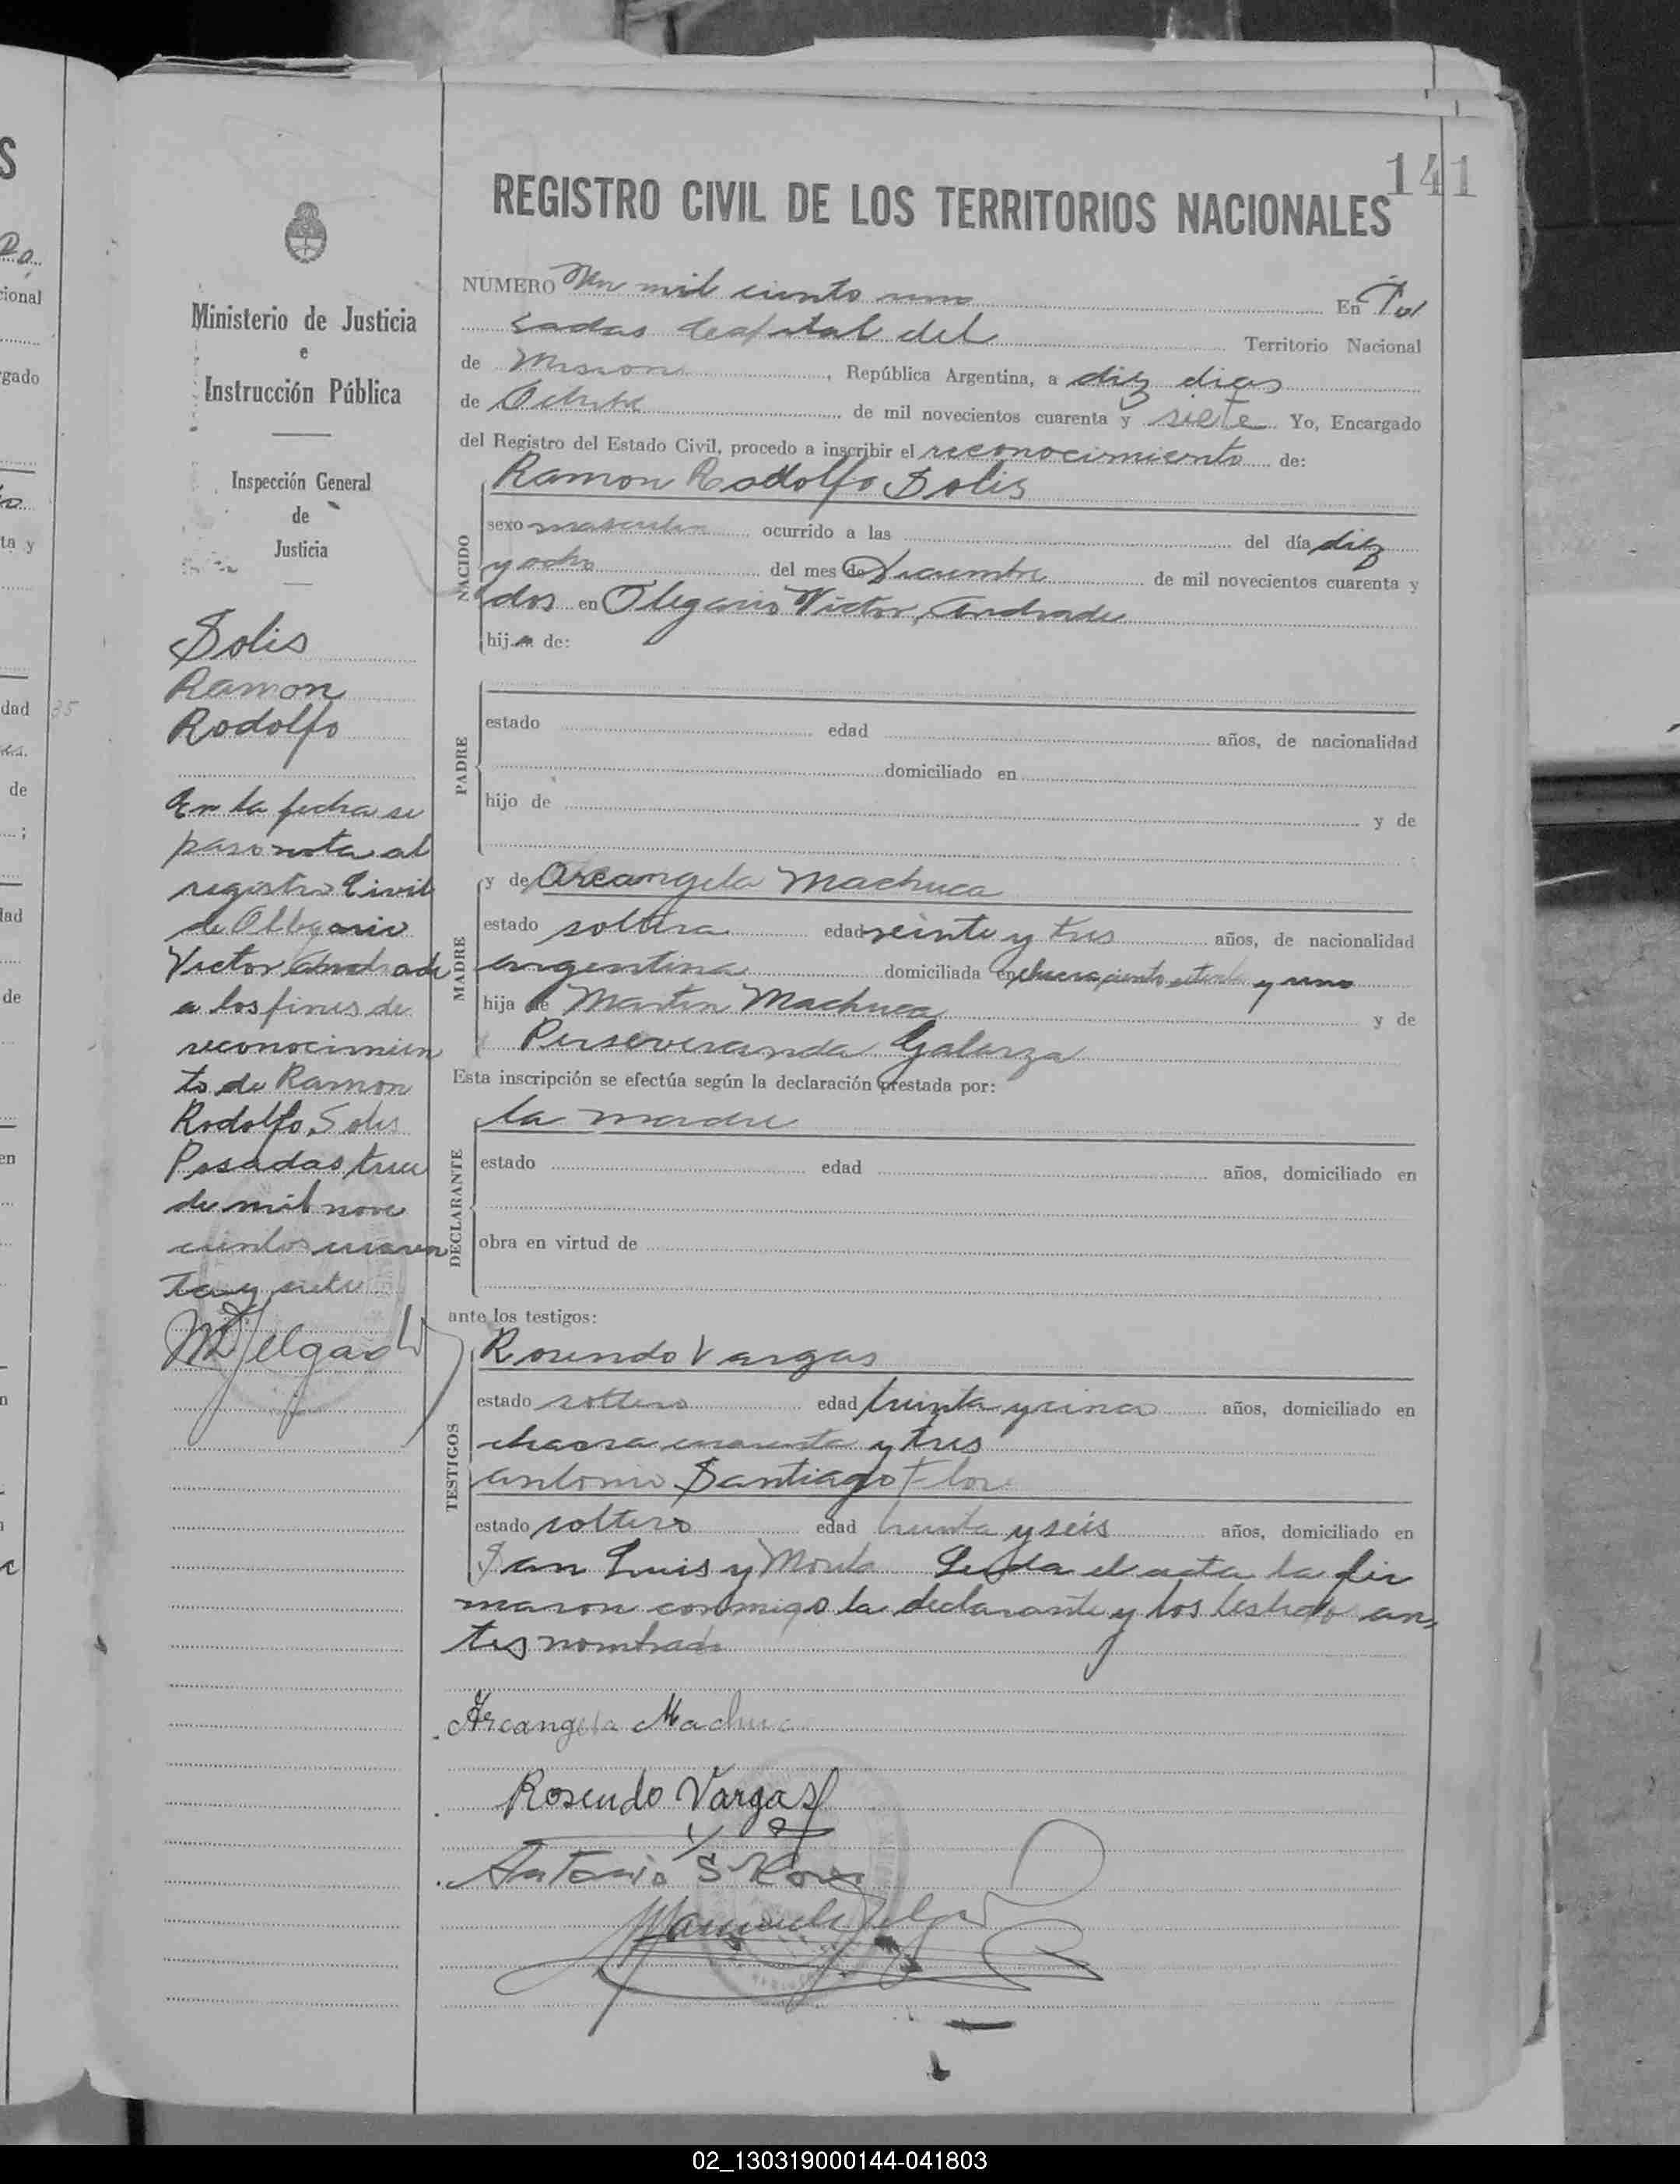 141
REGISTRO CIVIL DE LOS TERRITORIOS NACIONALES
Ministerio de Justicia
e
Instrucción Pública
Inspección General
de
Justicia
Solis
Ramon
Rodolfo
En la fecha se
paso nota al
registro Civil
de Olegario
Victor Andrade
a los fines de
reconocimien
to de Ramon
Rodolfo Solis
Posadas trece
de mil nove
cientos cuaren
ta y siete
M Delgado
NUMERO Un mil ciento uno En Po
sadas Capital del Territorio Nacional
de Misiones, República Argentina, a diez dias
de Octubre de mil novecientos cuarenta y siete Yo, Encargado
del Registro del Estado Civil, procedo a inscribir el reconocimiento de:
NACIDO
Ramon Rodolfo Solis
sexo masculino ocurrido a las del día diez
y ocho del mes de Diciembre de mil novecientos cuarenta y
dos en Olegario Victor Andrade
hij de:
PADRE
estado edad años, de nacionalidad
domiciliado en
hijo de y de
MADRE
y de Arcangela Machuca
estado soltera edad veinte y tres años, de nacionalidad
argentina domiciliada en chacra ciento setenta y uno
hija de Martin Machuca y de
Perseveranda Galarza
Esta inscripción se efectúa según la declaración prestada por:
DECLARANTE
la madre
estado edad años, domiciliado en
obra en virtud de
ante los testigos:
TESTIGOS
Rosendo Vargas
estado soltero edad treinta y cinco años, domiciliado en
chacra cuarenta y tres
Antonio Santiago Flor
estado soltero edad treinta y seis años, domiciliado en
San Luis y Leida el acta la fir
maron conmigo la declarante y los testigos an
tes nombrados
Arcangela Machuca
Rosendo Vargas
Antonio S
Manuel Delgado
02_130319000144-041803